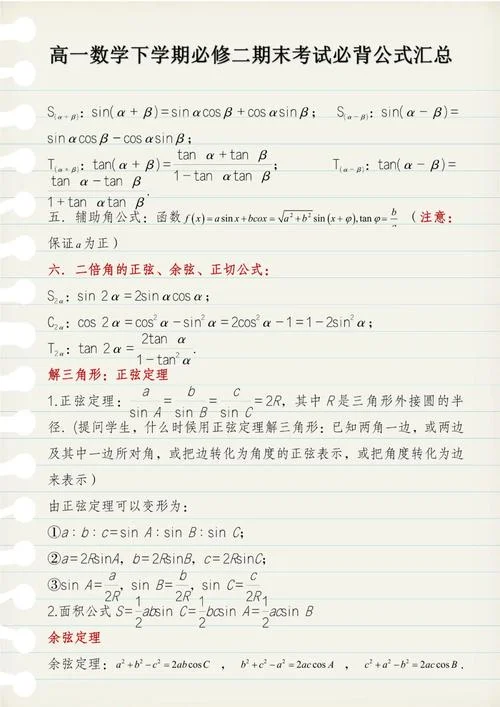 高一数学下学期必修二期末考试必背公式汇总
S(α+β)：sin(α+β)=sinαcosβ+cosαsinβ； S(α-β)：sin(α-β)=
sinαcosβ-cosαsinβ；
T(α+β)：tan(α+β)=(tan α+tan β)/(1-tan αtan β)； T(α-β)：tan(α-β)=
(tan α-tan β)/(1+tan αtan β).
五．辅助角公式：函数 f(x)=a sin x+bcox=√(a²+b²) sin(x+φ),tanφ=b/a （注意：
保证a为正）
六．二倍角的正弦、余弦、正切公式：
S2α：sin 2α=2sinαcosα；
C2α：cos 2α=cos²α-sin²α=2cos²α-1=1-2sin²α；
T2α：tan 2α=2tan α/(1-tan²α).
解三角形：正弦定理
1.正弦定理：a/sin A=b/sin B=c/sin C=2R，其中 R是三角形外接圆的半
径．(提问学生，什么时候用正弦定理解三角形；已知两角一边，或两边
及其中一边所对角，或把边转化为角度的正弦表示，或把角度转化为边
来表示)
由正弦定理可以变形为：
①a∶b∶c=sin A∶sin B∶sin C；
②a=2RsinA，b=2RsinB，c=2RsinC；
③sin A=a/2R，sin B=b/2R，sin C=c/2R
2.面积公式 S=1/2absin C=1/2bcsin A=1/2acsin B
余弦定理
余弦定理：a²+b²-c²=2ab cos C ，b²+c²-a²=2ac cos A ，c²+a²-b²=2ac cos B．